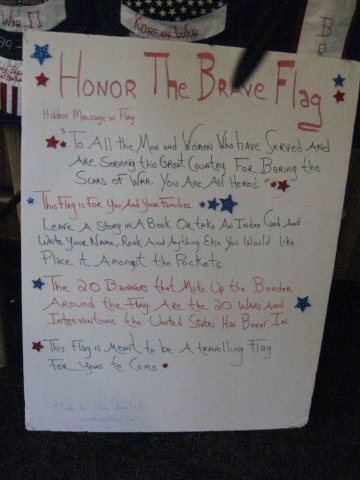 WAR II
KOREAN WAR
HONOR THE BRAVE FLAG
HIDDEN MESSAGE IN FLAG
"TO ALL THE MEN AND WOMEN WHO HAVE SERVED AND
ARE SERVING THIS GREAT COUNTRY. FOR BARING THE
SCARS OF WAR. YOU ARE All HERO'S."
THIS FLAG IS FOR YOU AND YOUR FAMILIES.
LEAVE A STORY IN A BOOK OR TAKE AN INDEX CARD AND
WRITE YOUR NAME, RANK AND ANYTHING ELSE YOU WOULD LIKE.
PLACE IT AMONGST THE POCKETS
THE 20 BANNERS THAT MAKE UP THE BORDER
AROUND THE FLAG ARE THE 20 WARS AND
INTERVENTIONS THE UNITED STATES HAS BEEN IN.
THIS FLAG IS MEANT TO BE A TRAVELLING FLAG
FOR YEARS TO COME
MADE BY